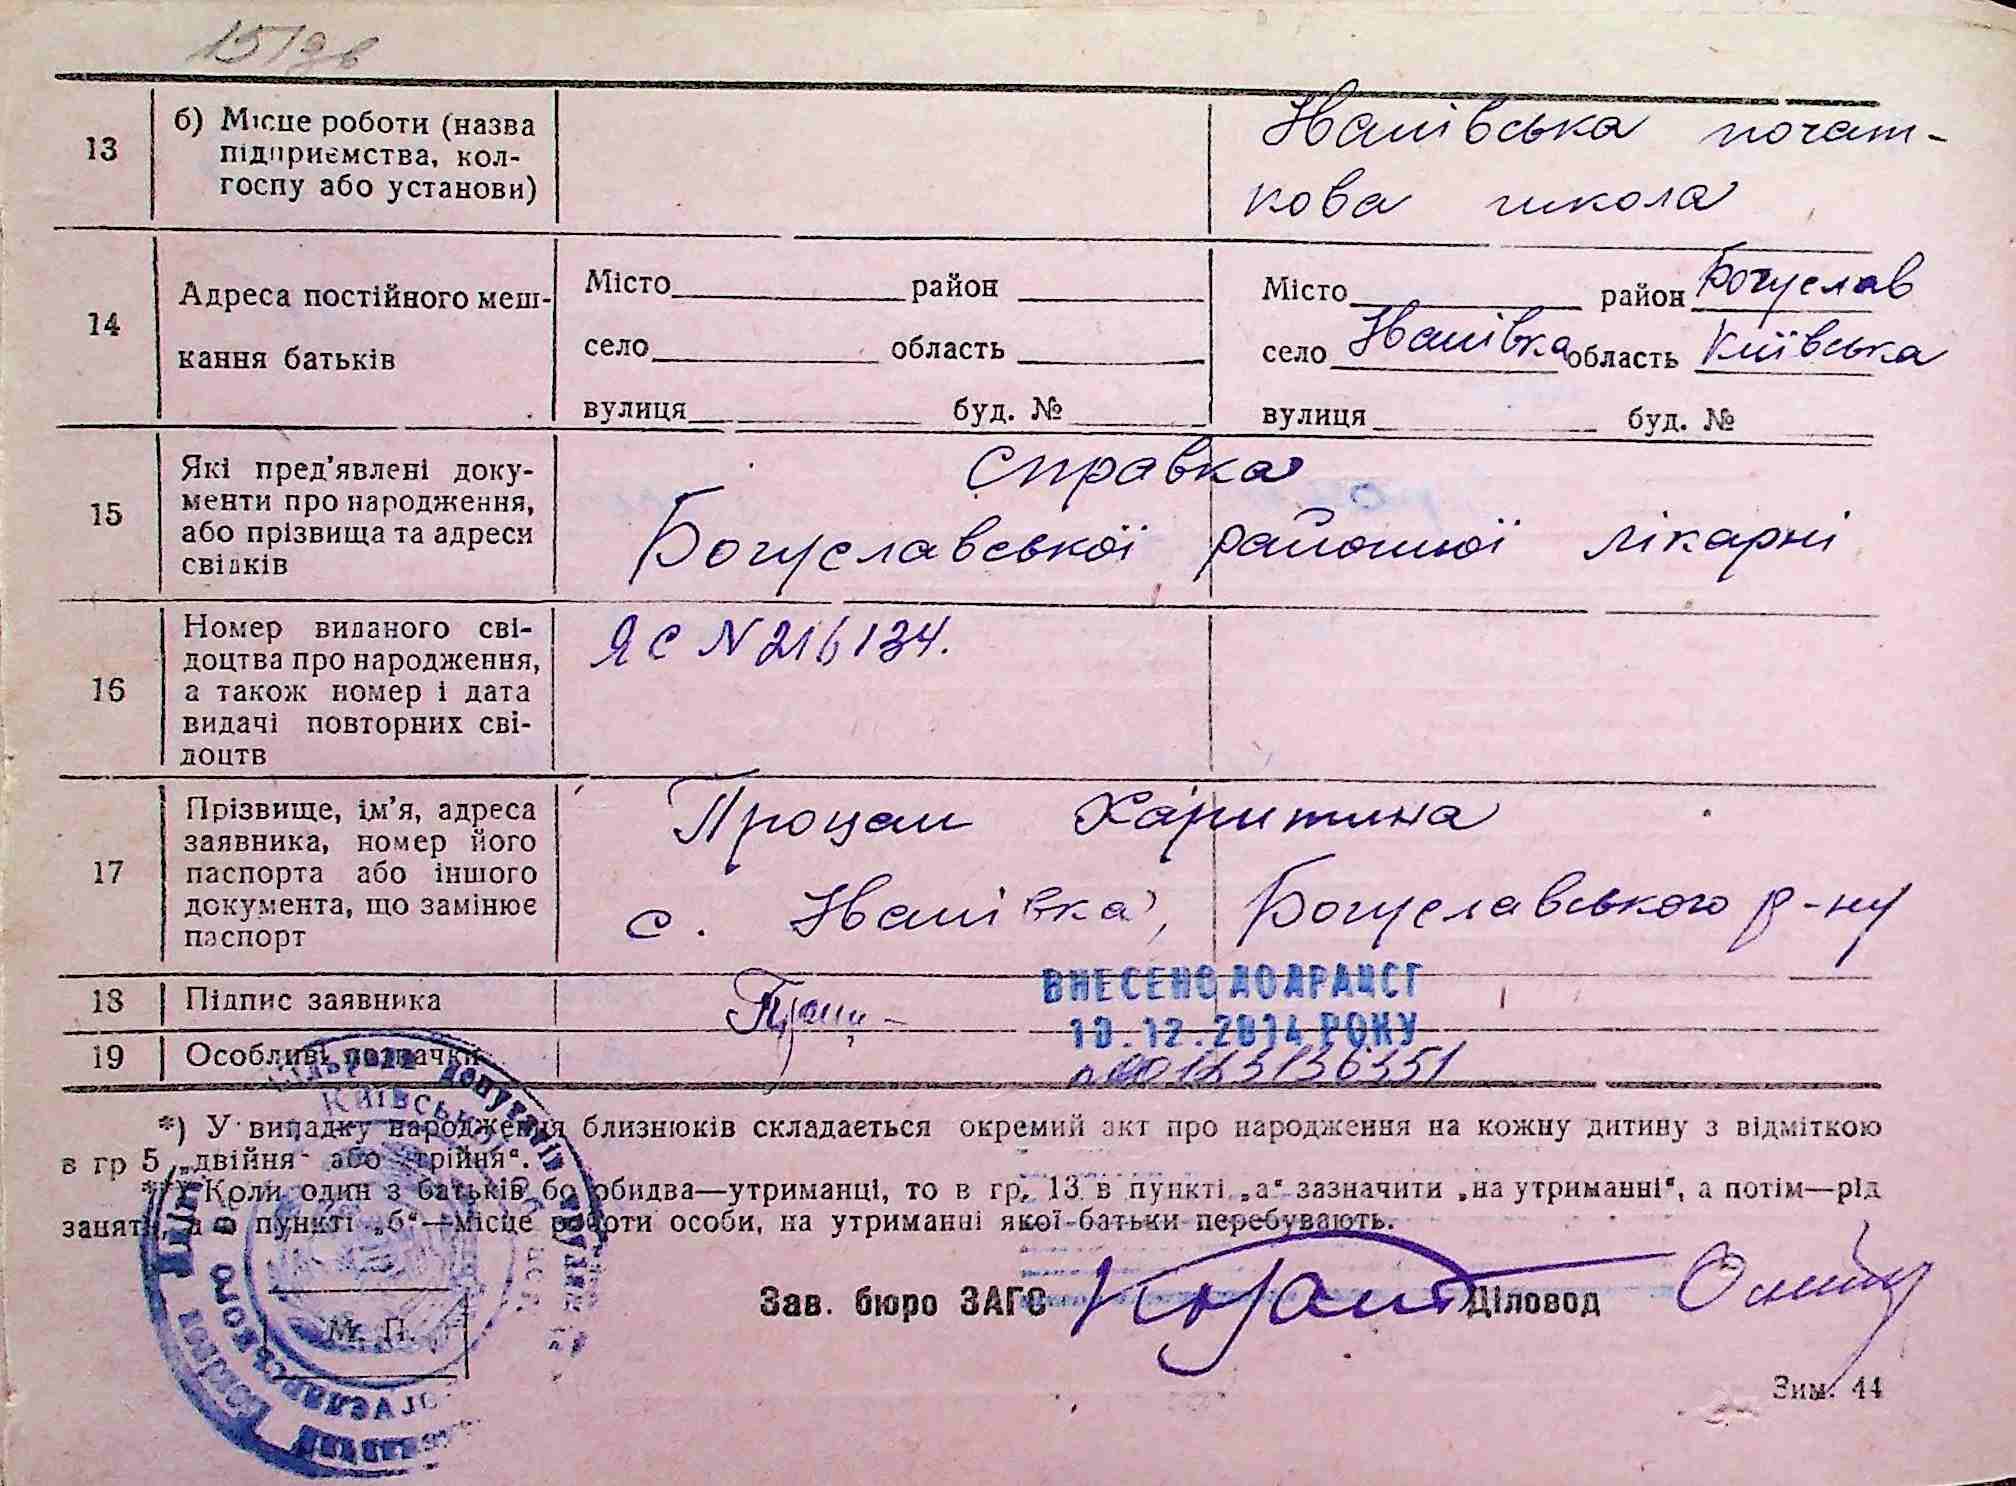 15/зв
13
б) Місце роботи (назва
підприємства, кол-
госпу або установи)
Іванівська почат-
кова школа
14
Адреса постійного меш-
кання батьків
Місто район
село область
вулиця буд. №
Місто район Богуслав
село Іванівка область Київська
вулиця буд. №
15
Які пред’явлені доку-
менти про народження,
або прізвища та адреси
свідків
Справка
Богуславської районної лікарні
16
Номер виданого сві-
доцтва про народження,
а також номер і дата
видачі повторних сві-
доцтв
ЯС N 216134.
17
Прізвище, ім’я, адреса
заявника, номер його
паспорта або іншого
документа, що замінює
паспорт
Процан Харитина
с. Іванівка, Богуславського р-ну
18
Підпис заявника
ВНЕСЕНО ДО ДРАЦСГ
10.12.2014 РОКУ
19
Особливі позначки
00123136351
*) У випадку народження близнюків складається окремий акт про народження на кожну дитину з відміткою
в гр 5 „двійня“ або „трійня“.
**) Коли один з батьків бо обидва—утриманці, то в гр. 13 в пункті „а“ зазначити „на утриманні“, а потім—рід
занять, а в пункті „б“—місце роботи особи, на утриманні якої батьки перебувають.
Зав. бюро ЗАГС
Діловод
М. П.
Зим. 44